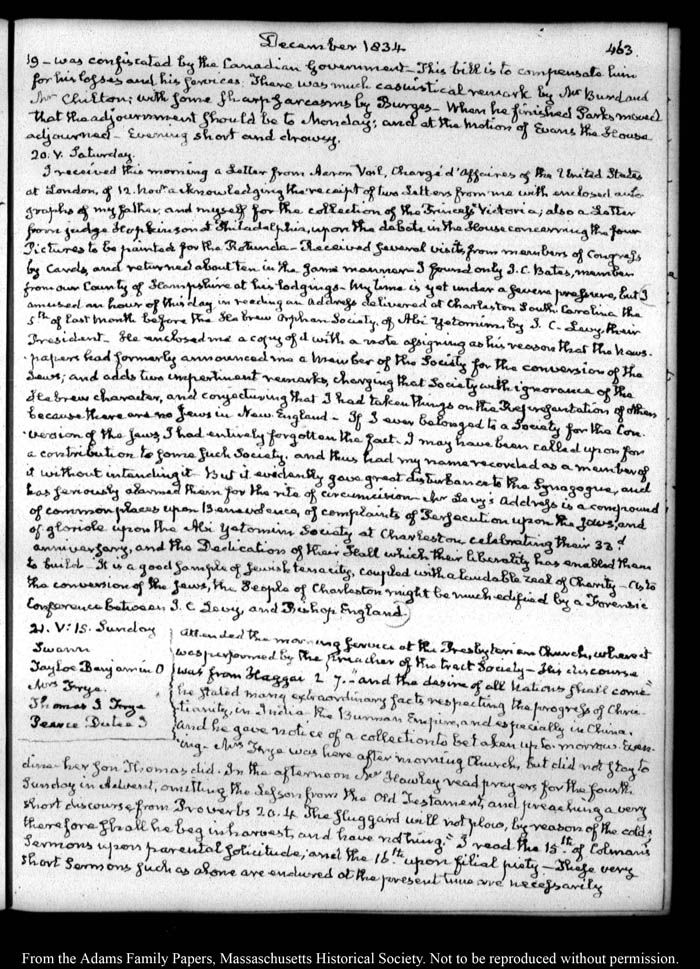 December 1834
463
19 – was confiscated by the Canadian Government – This bill is to compensate him
for his losses and his services. There was much casuistical remark by Mr Burd and
Mr Chilton; with some sharp sarcasms by Burges – When he finished Parks moved
that the adjournment should be to Monday; and at the motion of Evans the House
adjourned – Evening short and drowsy.
20. V. Saturday.
I received this morning a Letter from Aaron Vail, Chargé d'Affaires of the United States
at London, of 12. Novr acknowledging the receipt of two Letters from me with enclosed auto-
graphs of my father, and myself for the collection of the Princess Victoria; also a Letter
from Judge Hopkinson at Philadelphia, upon the debate in the House concerning the four
Pictures to be painted for the Rotunda – Received several visits from members of Congress
by Cards, and returned about ten in the same manner – I found only I. C. Bates, member
from our County of Hampshire at his lodgings – My time is yet under a severe pressure, but I
amused an hour of this day in reading an Address delivered at Charleston South Carolina the
5th of last month before the Hebrew Orphan Society, of Abi Yetomim, by J. C. Levy, their
President – He enclosed me a copy of it with a note assigning as his reason that the News-
-papers had formerly announced me a Member of the Society for the conversion of the
Jews; and adds two impertinent remarks, charging that Society with ignorance of the
Hebrew character, and conjecturing that I had taken things on the Representation of others
because there are no Jews in New England – If I ever belonged to a Society for the Con-
-version of the Jews, I had entirely forgotten the fact. I may have been called upon for
a contribution to some such Society, and thus had my name recorded as a member of
it without intending it – But it evidently gave great disturbance to the Synagogue, and
has seriously alarmed them for the rite of circumcision – Mr Levy's Address is a compound
of common places upon Benevolence, of complaints of Persecution upon the Jews, and
of gloriole upon the Abi Yetomim Society at Charleston, celebrating their 33d
anniversary, and the Dedication of their Hall which their liberality has enabled them
to build – It is a good sample of Jewish tenacity, coupled with a laudable zeal of Charity – As to
the conversion of the Jews, the People of Charleston might be much edified by a Forensic
Conference between J. C. Levy, and Bishop England –
21. V: 15. Sunday
Swann
Tayloe Benjamin O
Mrs Frye.
Thomas I Frye
Pearce Dutee I
Attended the morning service at the Presbyterian Church, where it
was performed by the Preacher of the tract Society – His discourse
was from Haggai 2. 7. "and the desire of all Nations shall come"
he stated many extraordinary facts respecting the progress of Chris-
tianity, in India the Burman Empire, and especially in China.
and he gave notice of a collection to be taken up to-morrow. Even-
ing – Mrs Frye was here after morning Church, but did not stay to
dine – her Son Thomas did. In the afternoon Mr Hawley read prayers for the fourth
Sunday in Advent, omitting the Lesson from the Old Testament, and preaching a very
short discourse from Proverbs 20. 4. The sluggard will not plow, by reason of the cold;
therefore shall he beg in harvest, and have nothing." I read the 15th of Colman's
Sermons upon parental solicitude; and the 16th upon filial piety – These very
short Sermons such as alone are endured at the present time are necessarily
From the Adams Family Papers, Massachusetts Historical Society. Not to be reproduced without permission.